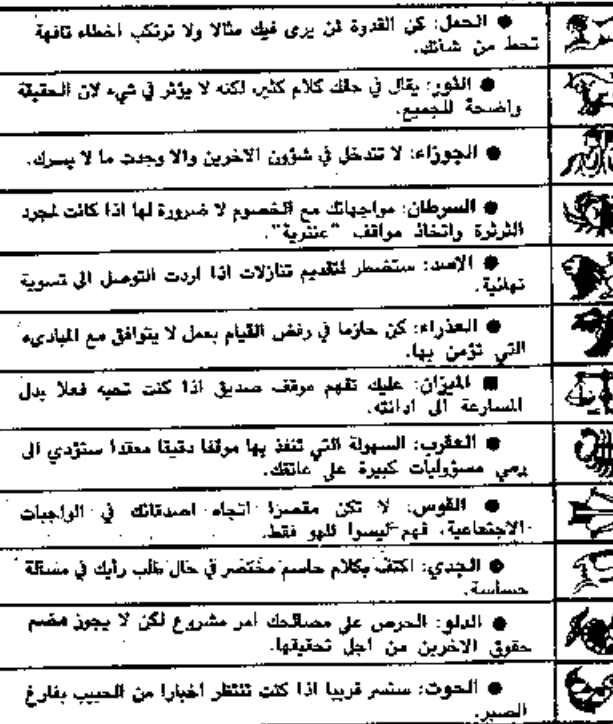 ● الحمل: كن القدوة لمن يرى فيك مثالا ولا ترتكب اخطاء تافهة
تحط من شانك.
● الثور: يقال في حقك كلام كثير لكنه لا يؤثر في شيء لان الحقيقة
واضحة للجميع.
● الجوزاء: لا تتدخل في شؤون الاخرين والا وجدت ما لا يسرك.
● السرطان: مواجهاتك مع الخصوم لا ضرورة لها اذا كانت لمجرد
الثرثرة واتخاذ مواقف "عنترية".
● الاسد: ستضطر لتقديم تنازلات اذا اردت التوصل الى تسوية
نهائية.
● العذراء: كن حازما في رفض القيام بعمل لا يتوافق مع المبادىء
التي تؤمن بها.
■ الميزان: عليك تفهم موقف صديق اذا كنت تحبه فعلا بدل
المسارعة الى ادانته.
● العقرب: السهولة التي تنفذ بها موقفا دقيقا معقدا ستؤدي الى
رمي مسؤوليات كبيرة على عاتقك.
● القوس: لا تكن مقصرا اتجاه اصدقائك في الواجبات
الاجتماعية، فهم ليسوا للهو فقط.
● الجدي: اكتف بكلام حاسم مختصر في حال طلب رأيك في مسالة
حساسة.
● الدلو: الحرص على مصالحك امر مشروع لكن لا يجوز هضم
حقوق الاخرين من اجل تحقيقها.
● الحوت: ستسر قريبا اذا كنت تنتظر اخبارا من الحبيب بفارغ
الصبر.